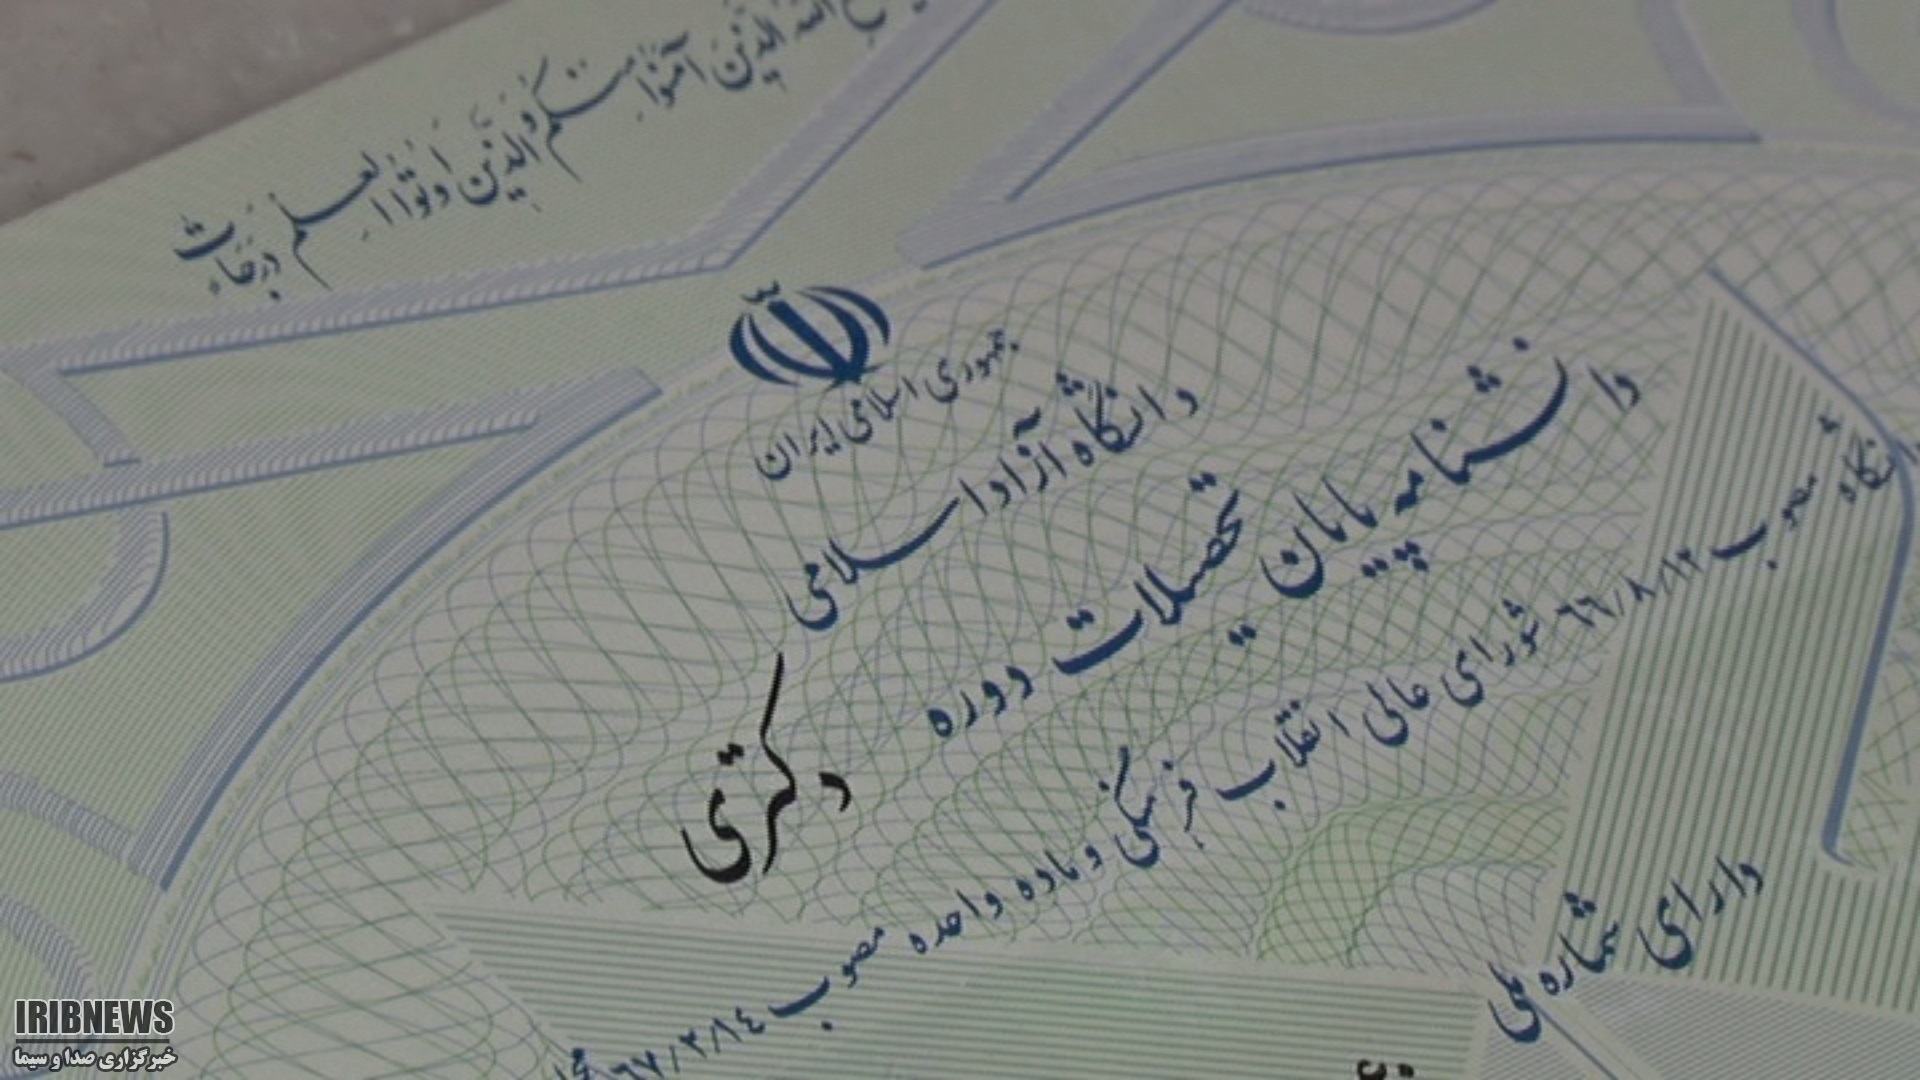 الله الذین آمنوا منکم و الذین اوتوا العلم درجات
جمهوری اسلامی ایران
دانشگاه آزاد اسلامی
دانشنامه پایان تحصیلات دوره
دکتری
دانشگاه مصوب ۶۶/۸/۱۲ شورای عالی انقلاب فرهنگی و ماده واحده مصوب ۶۷/۲/۱۴
دارای شماره ملی
IRIBNEWS
خبرگزاری صدا و سیما